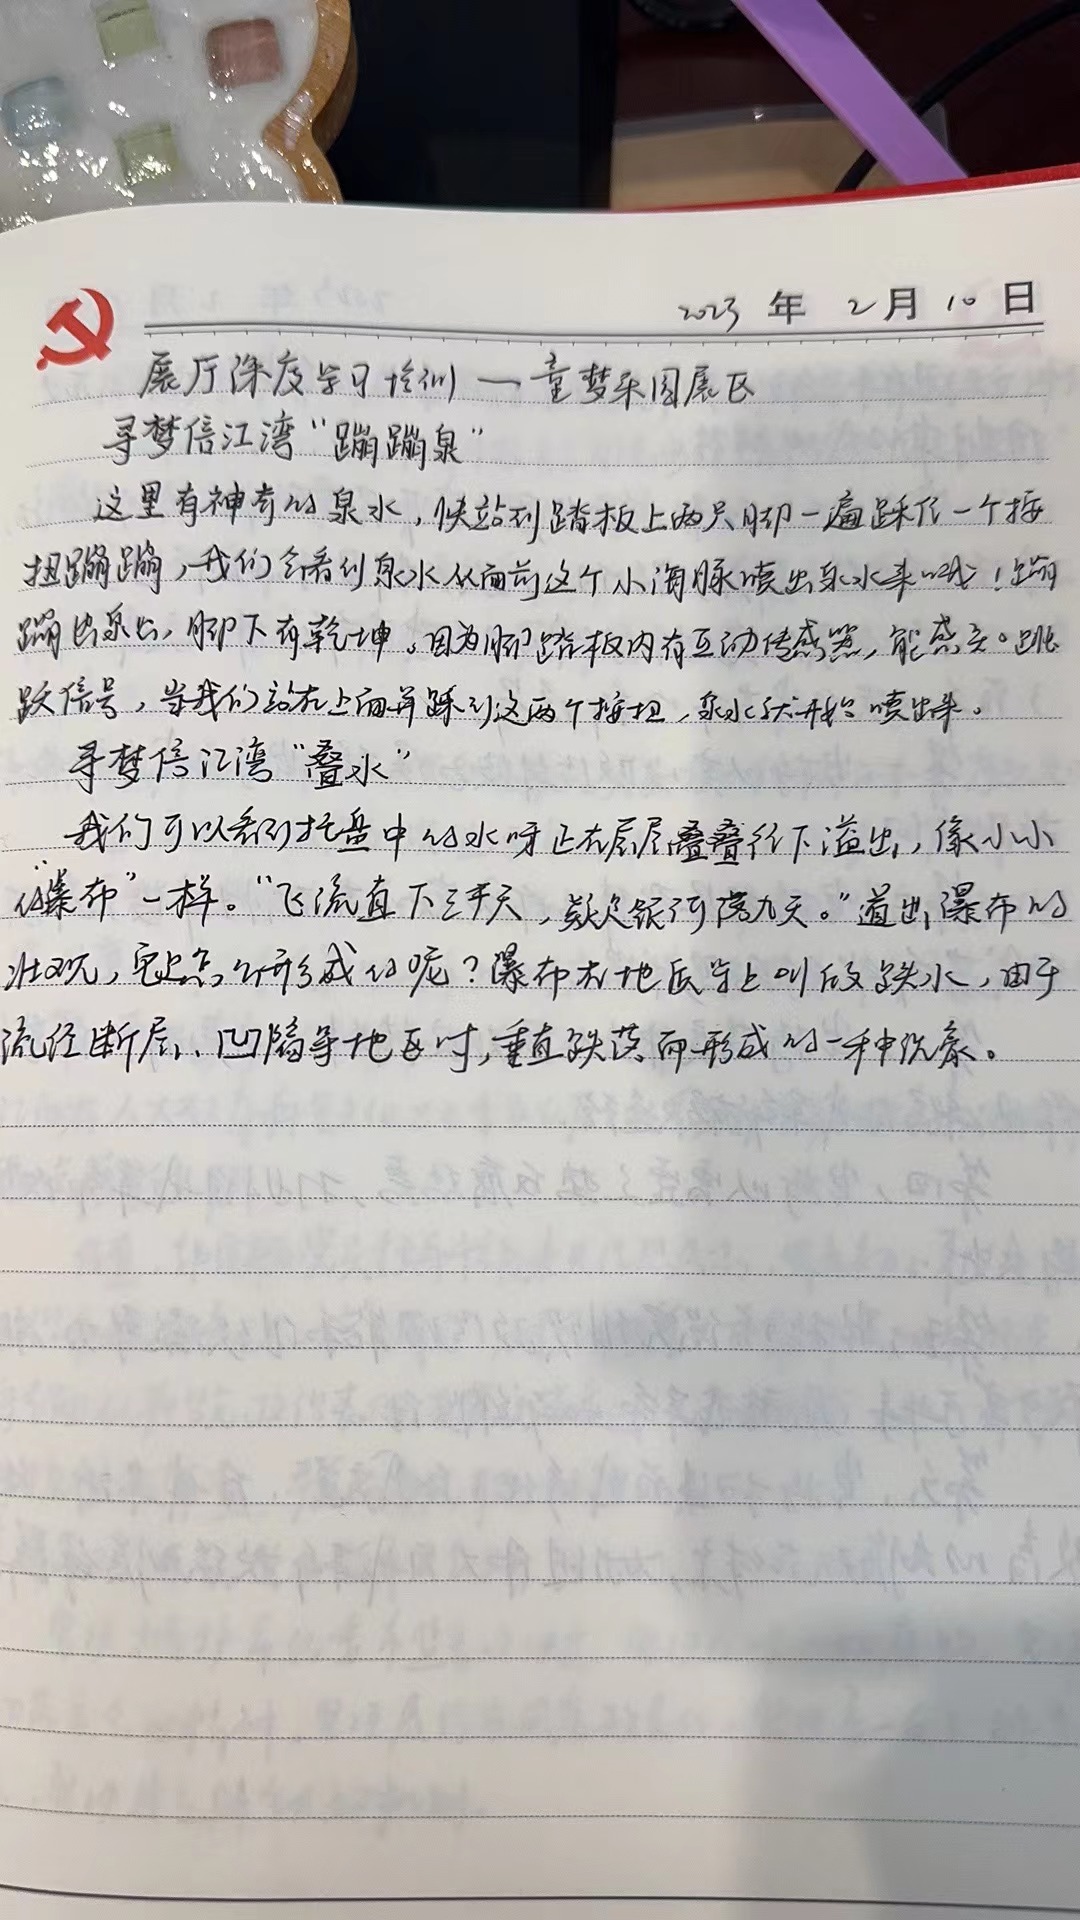 2023 年 2 月 10 日
展厅深度学习培训 — 童梦乐园展区
寻梦信江湾“蹦蹦泉”
这里有神奇的泉水，快站到踏板上两只脚一遍踩住一个按
扭蹦蹦，我们会看到泉水从面前这个小海豚喷出泉水来哦！蹦
蹦出泉出，脚下有乾坤。因为脚踏板内有互动传感器，能感应跳
跃信号，当我们站在上面并踩到这两个按扭，泉水就开始喷出来。
寻梦信江湾“叠水”
我们可以看到托盘中的水呀正在层层叠叠往下溢出，像小小
的“瀑布”一样。“飞流直下三千天，疑是银河落九天。”道出瀑布的
壮观，它是怎么形成的呢？瀑布在地质学上叫做跌水，由于
流经断层、凹陷等地区时，垂直跌落而形成的一种现象。